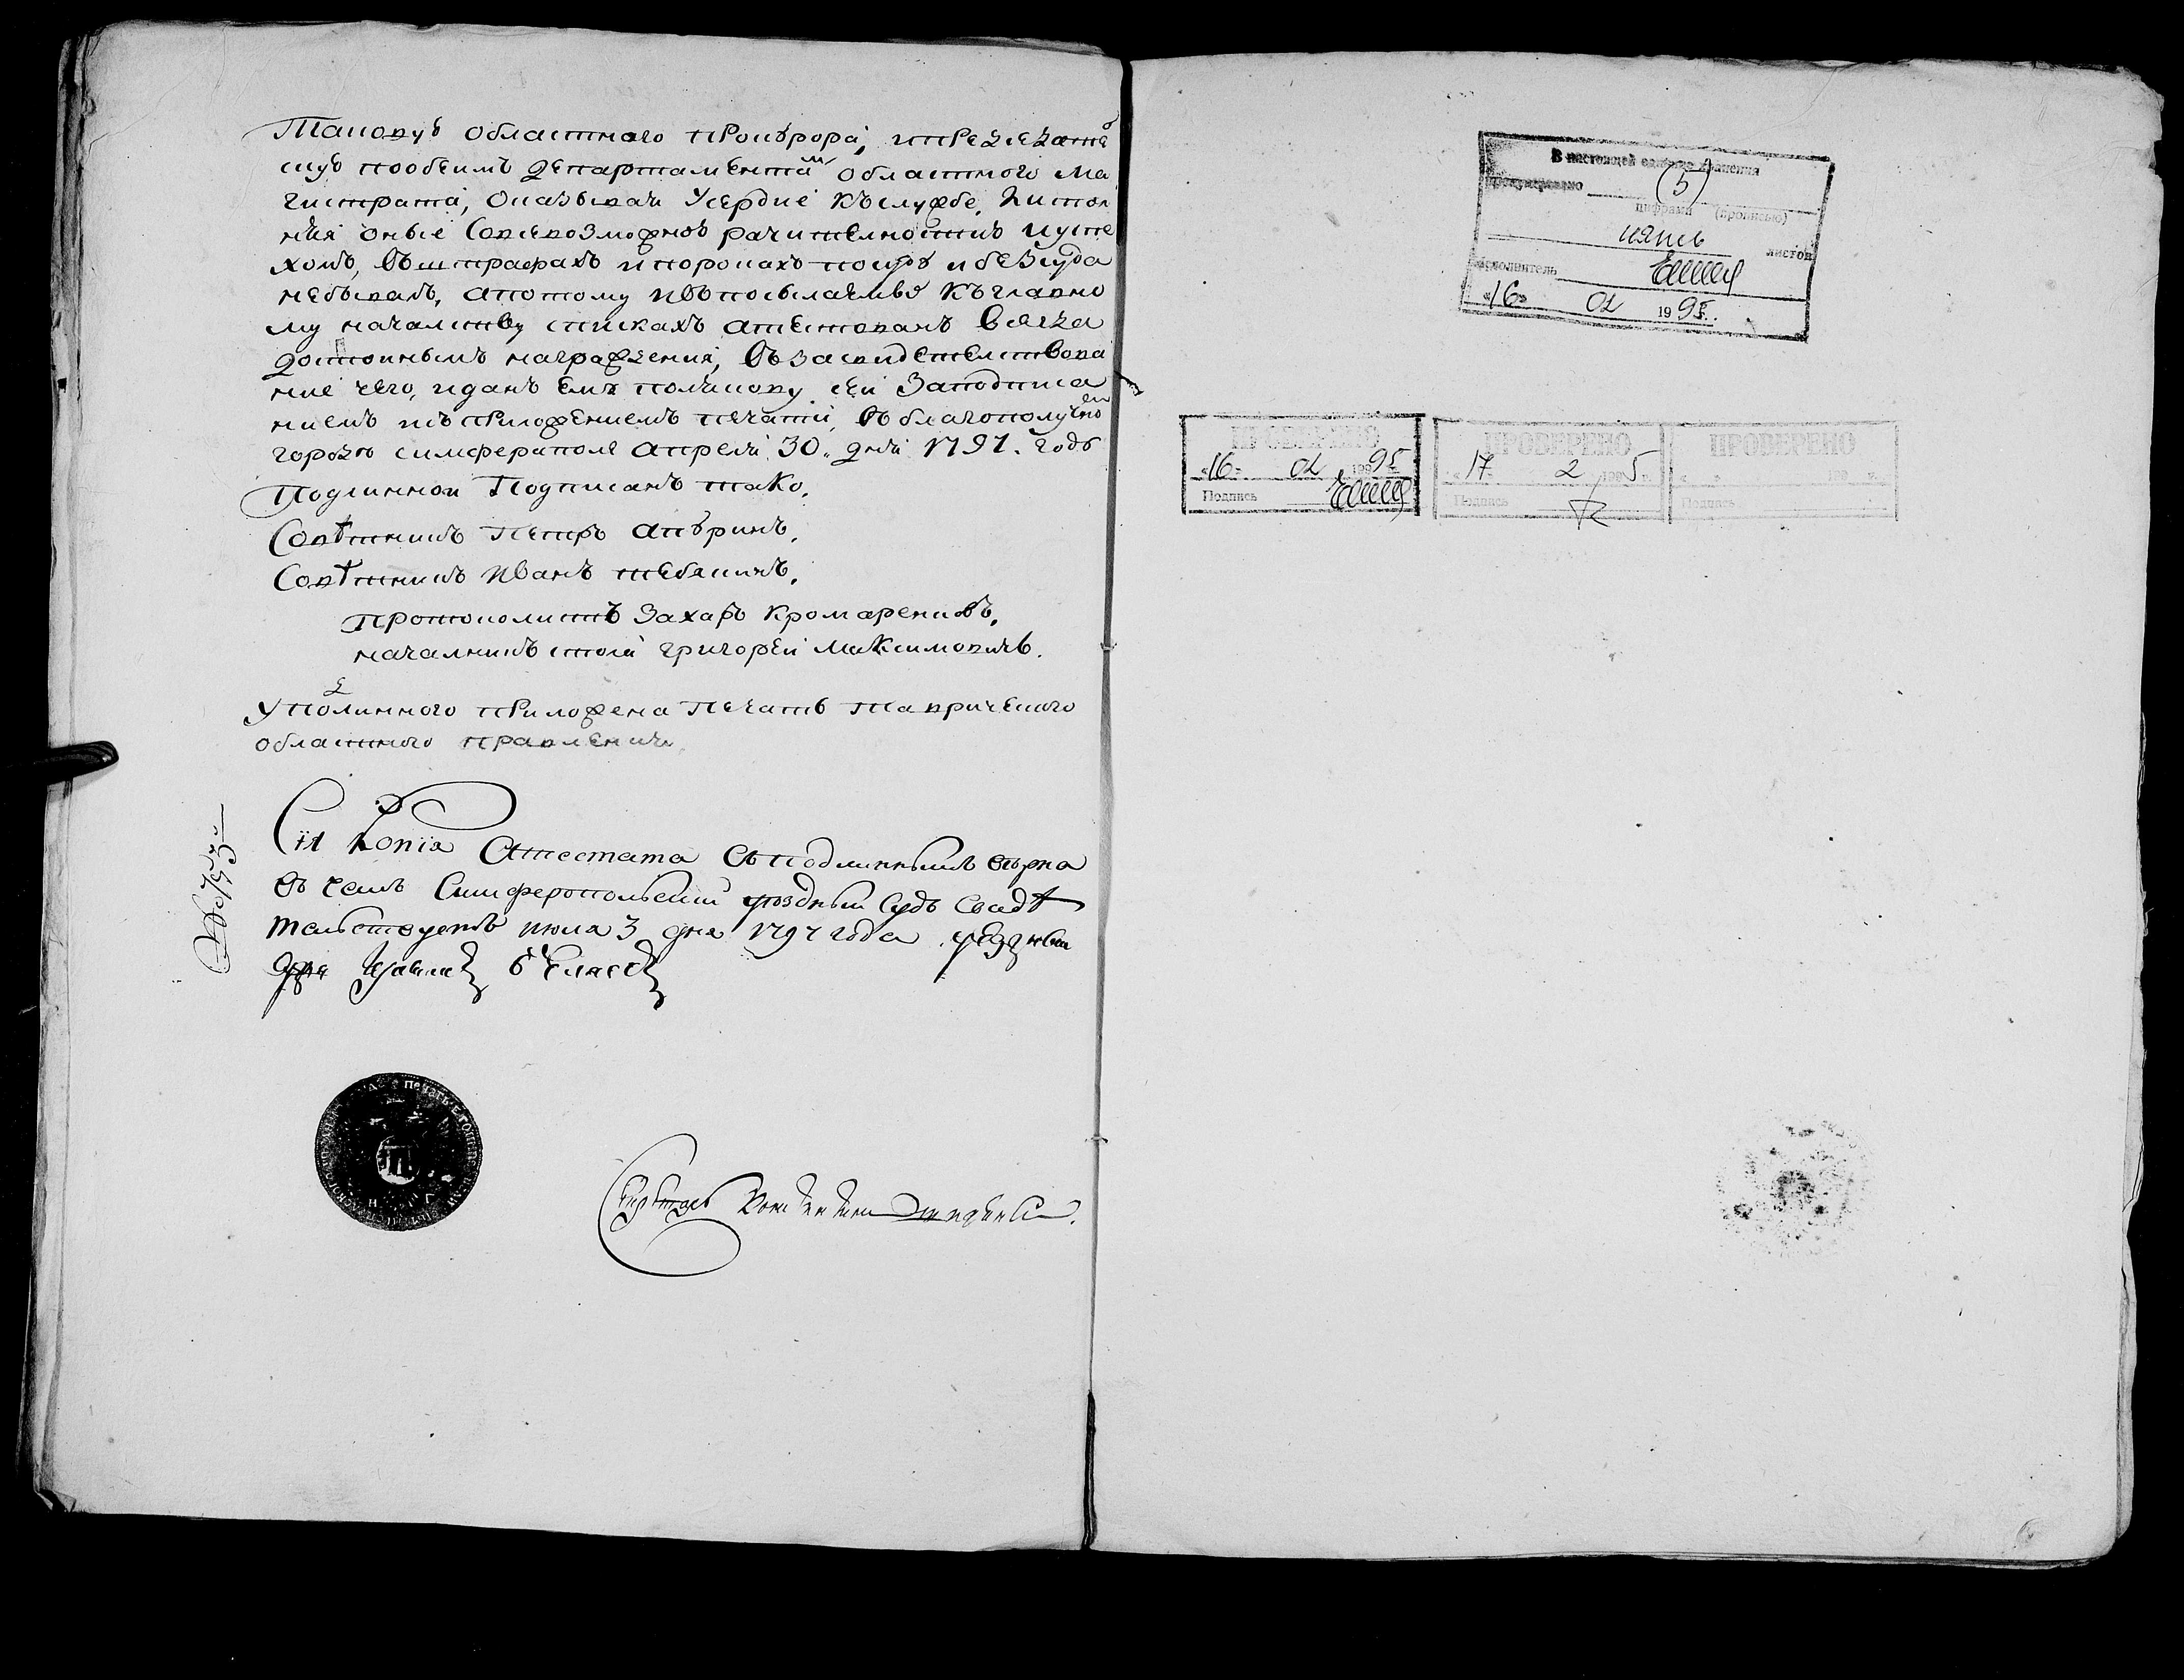 таковую областного прокурора, и председате
скую пообеимъ департаментамъ областного ма
гистрата, оказывая усердие къ службе, и испол
нѣя оные совсевозможною рачителностию и успе
хомъ, въ штрафахъ и пороках по суду и безсуда
небывалъ, апотому и въ посылаемыхъ къ главно
му началству спискахъ атестованъ всегда
достойнымъ награждения, въ засвидетелствова
ние чего, и данъ ему полякову сей заподписа
ниемъ и съ приложениемъ печати, въ благополучно
городе симферополе апреля 30. дня 1791. годѣ
Подлинной подписанъ тако.
Советникъ Петръ
Советникъ Иванъ
Протоколистъ Захаръ
началникъ стола григорей Максимовичъ.
У подлинного приложена печать таврического
областного правления
Сія копія атестата съ подлиннымъ верна
въ чемъ Симферополский уездный судъ свиде
тельствуетъ июля 3 дня 1797 года уездный
судья
Секретарь
В настоящей единице хранения
пронумеровано (5)
цифрами (прописью)
пять листов
Исполнитель
«16» 02 1995.
ПРОВЕРЕНО
«16» 02 1995
Подпись
ПРОВЕРЕНО
«17» 2 1995 г.
Подпись
ПРОВЕРЕНО
Подпись